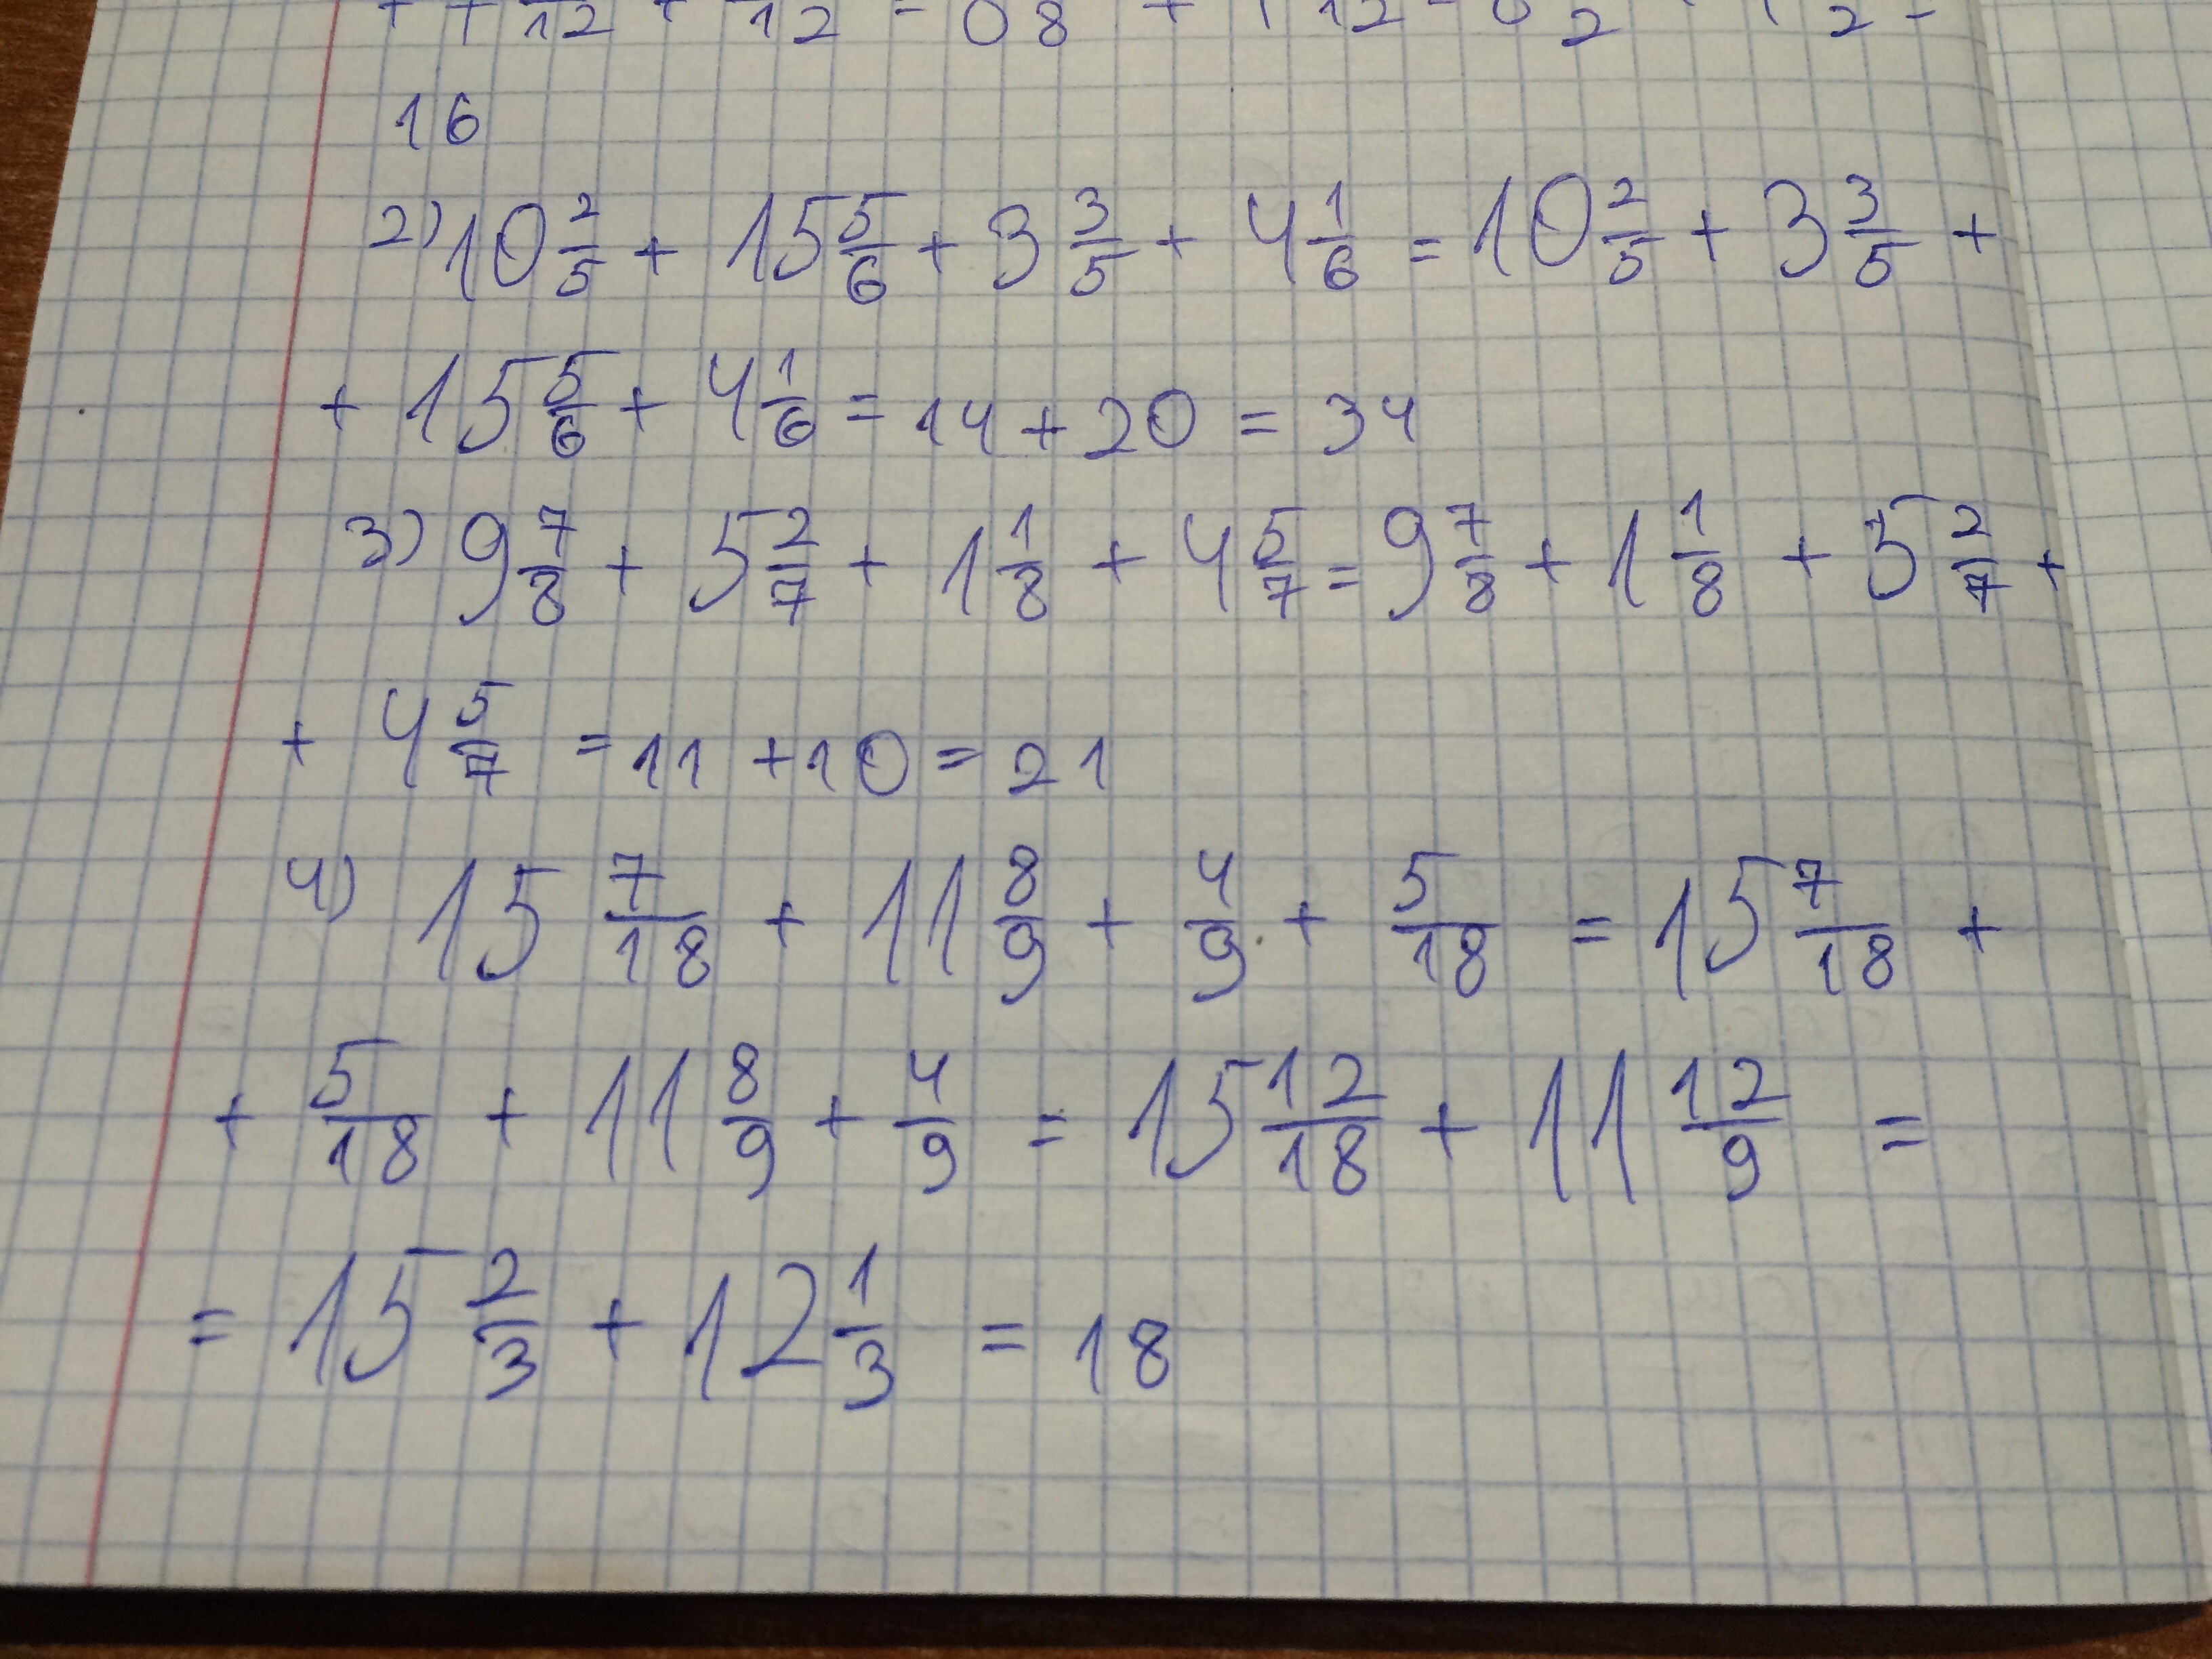 16
2) 10 2/5 + 15 5/6 + 3 3/5 + 4 1/6 = 10 2/5 + 3 3/5 +
+ 15 5/6 + 4 1/6 = 14 + 20 = 34
3) 9 7/8 + 5 2/7 + 1 1/8 + 4 5/7 = 9 7/8 + 1 1/8 + 5 2/7 +
+ 4 5/7 = 11 + 10 = 21
4) 15 7/18 + 11 8/9 + 4/9 + 5/18 = 15 7/18 +
+ 5/18 + 11 8/9 + 4/9 = 15 12/18 + 11 12/9 =
= 15 2/3 + 12 1/3 = 18